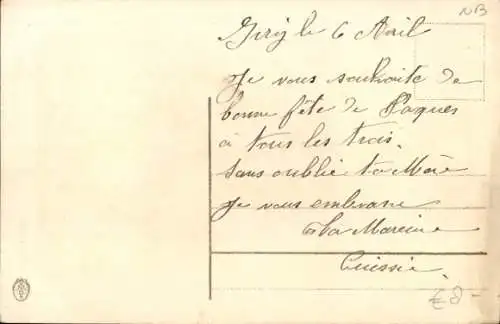 NB
le 6 Avril
Je vous souhaite de
bonne fête de Paques
à tous les trois.
sans oublié ta Mère
Je vous embrasse
ta Mareine
€8-